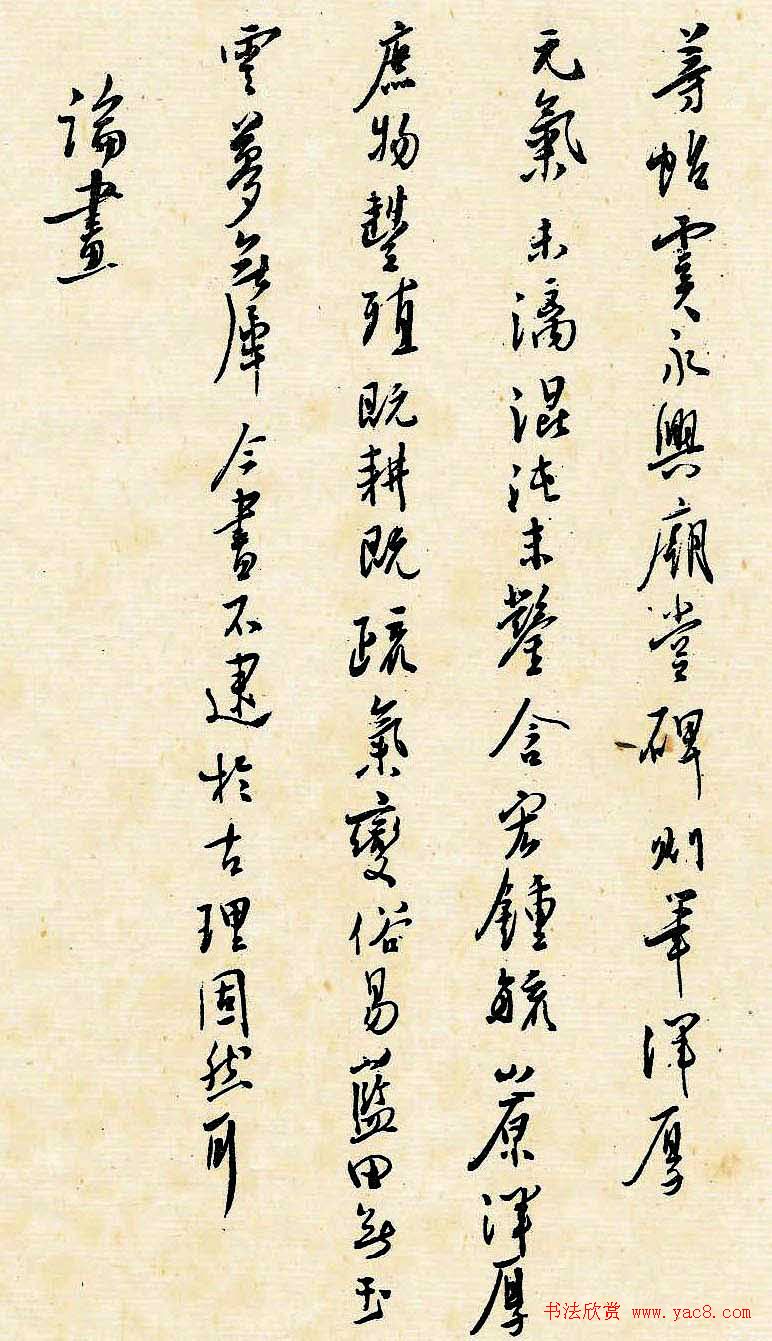 帖虞永興廟堂碑則筆渾厚
元氣未漓混沌未鑿含宏鍾毓山原渾厚
庶物豐殖既耕既疏氣變俗易藍田無玉
雲夢無犀今書不逮於古理固然耳
論畫
书法欣赏 www.yac8.com